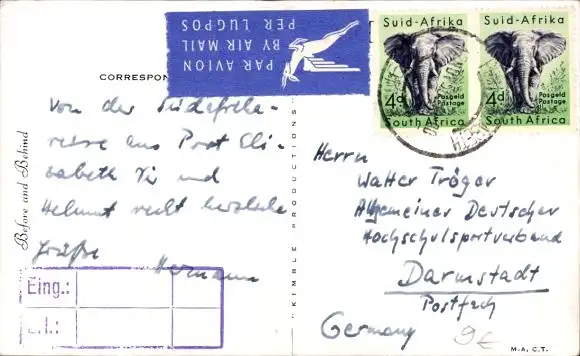 Suid-Afrika
Suid-Afrika
4d
Posgeld
Postage
South Africa
4d
Posgeld
Postage
South Africa
PAR AVION
BY AIR MAIL
PER LUGPOS
CORRESPON
Before and Behind
Von der Südafrika-
reise aus Port Eli-
zabeth Dir und
Helmut recht herzliche
Grüße
Hermann
Eing.:
"KIMBLE PRODUCTIONS"
Herrn
Walter Tröger
Allgemeiner Deutscher
Hochschulsportverband
Darmstadt
Postfach
Germany
9€
M-A, C.T.